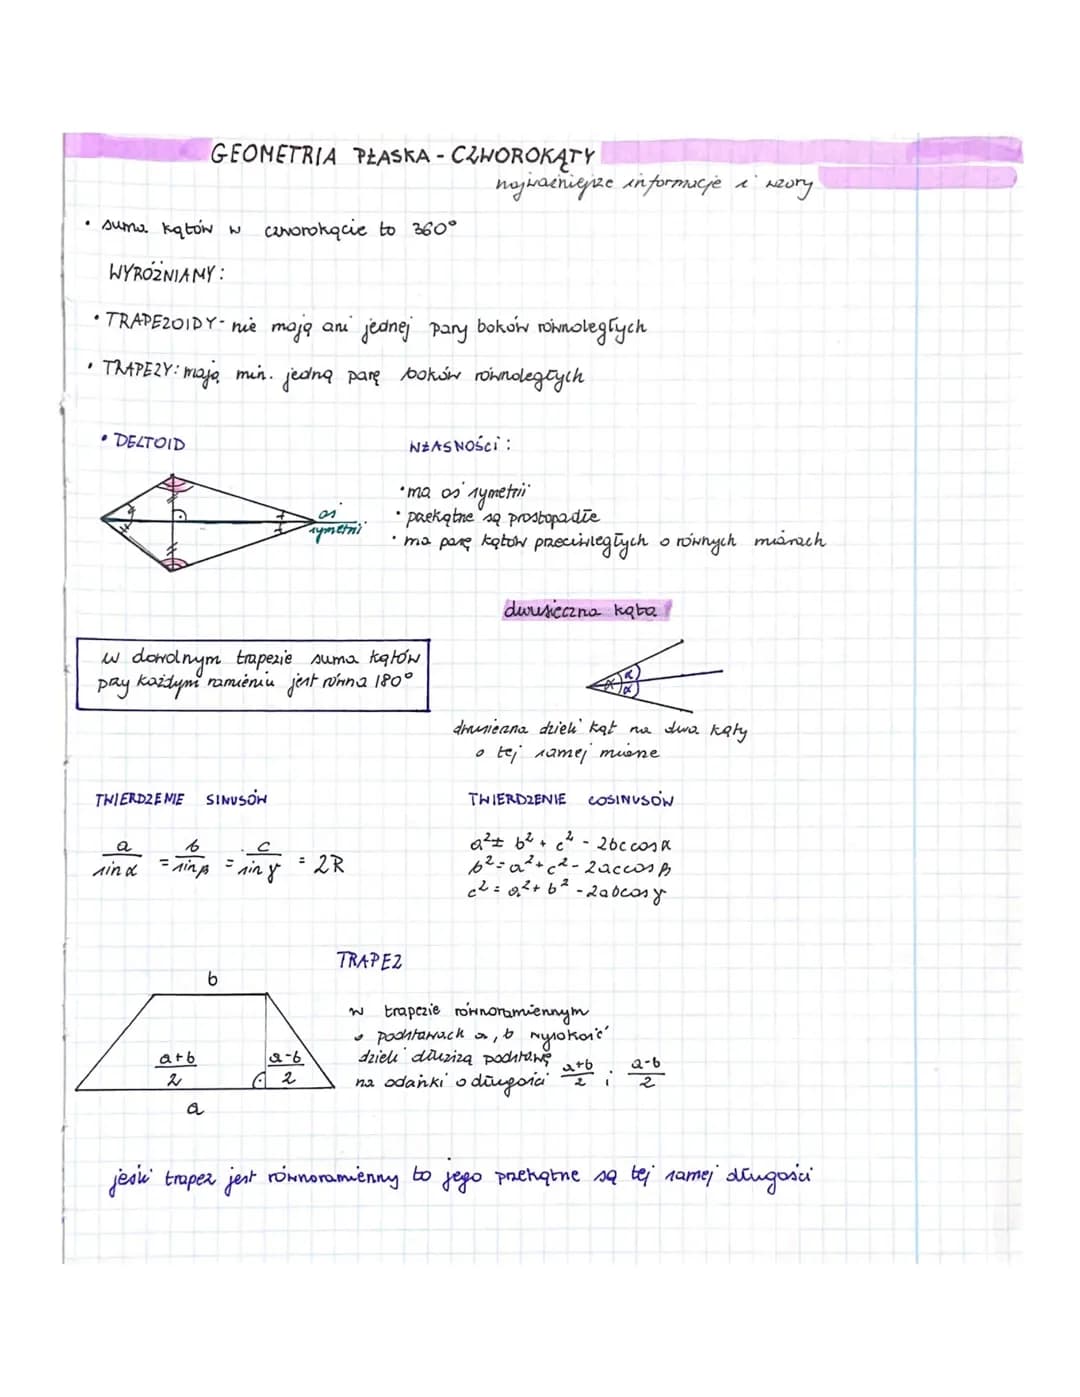 GEOMETRIA PŁASKA - CZWOROKĄTY
najważniejsze informacje i wzory
• suma kątów w czworokącie to 360°
WYRÓŻNIAMY:
• TRAPEZOIDY - nie mają ani jednej pary boków równoległych
• TRAPEZY: mają min. jedną parę boków równoległych
• DELTOID
WŁASNOŚCI:
oś
symetrii
• ma oś symetrii
• przekątne są prostopadłe
• ma parę kątów przeciwległych o równych miarach
dwusieczna kąta
w dowolnym trapezie suma kątów
przy każdym ramieniu jest równa 180°
α
α
dwusieczna dzieli kąt na dwa kąty
o tej samej mierze
TWIERDZENIE SINUSÓW
a/sin α = b/sin β = c/sin γ = 2R
TWIERDZENIE COSINUSÓW
a² = b² + c² - 2bc cos α
b² = a² + c² - 2ac cos β
c² = a² + b² - 2ab cos γ
TRAPEZ
b
a+b/2
a-b/2
a
w trapezie równoramiennym
o podstawach a, b wysokość
dzieli dłuższą podstawę
na odcinki o długości a+b/2 i a-b/2
jeśli trapez jest równoramienny to jego przekątne są tej samej długości